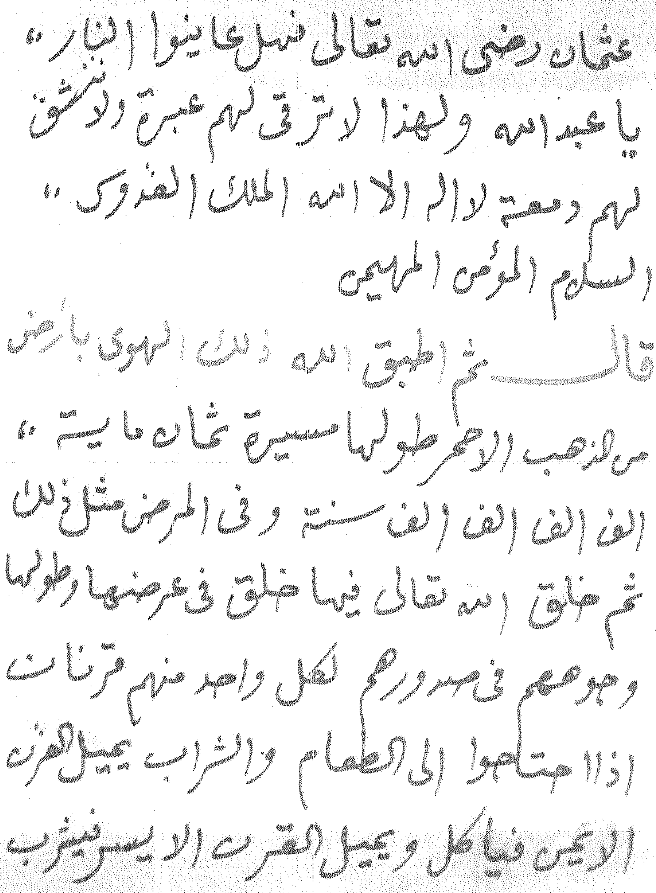 عثمان رضى الله تعالى فهل عاينوا النار ،،
يا عبد الله ولهذا لا ترقى لهم عبرة ولا تنشق
لهم دمعة لا اله الا الله الملك القدوس ،،
السلام المؤمن المهيمن
قال ثم اطبق الله ذلك الهوى بأرض
من الذهب الاحمر طولها مسيرة ثمان ماية ،،
الف الف الف الف سنة وفى العرض مثل ذلك
ثم خلق الله تعالى فيها خلق فى عرضها وطولها
وجوههم فى صدورهم لكل واحد منهم قرنان
اذا احتاحوا الى الطعام والشراب يميل القرن
الايمن فياكل ويميل القرن الايسر فيشرب